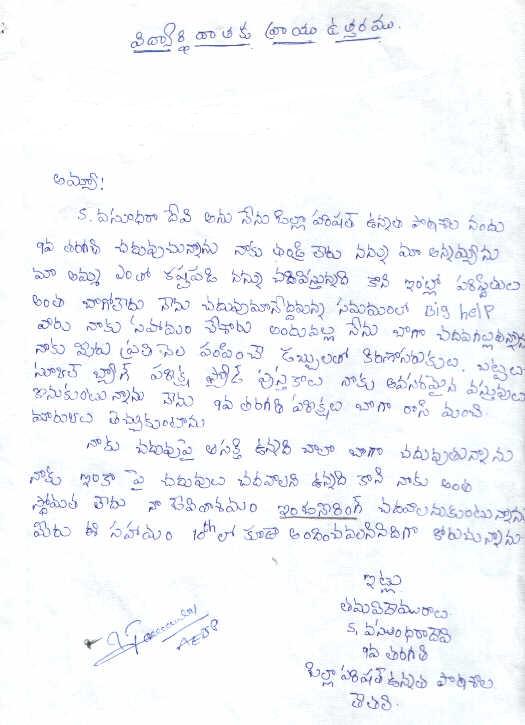 విద్యార్థి దాతకు వ్రాయు ఉత్తరము.
అమ్మా!
S. వసుంధరా దేవి అను నేను జిల్లా పరిషత్ ఉన్నత పాఠశాల నందు
9వ తరగతి చదువుచున్నాను నాకు తండ్రి లేడు నన్ను మా అన్నయ్యను
మా అమ్మ ఎంతో కష్టపడి నన్ను చదివిస్తున్నది కాని ఇంట్లో పరిస్థితులు
అంతా బాగోలేదు నేను చదువుమానేద్దామన్న సమయంలో Big help
వారు నాకు సహాయం చేశారు అందువల్ల నేను బాగా చదవగల్గుతున్నాను
నాకు మీరు ప్రతి నెల పంపించే డబ్బులతో కిరాణాసరుకులు, బట్టలు
పరిక్ష పుస్తకాలు నాకు అవసరమైన వస్తువులు
కొనుకుంటున్నాను నేను 9వ తరగతి పరిక్షలు బాగా రాసి మంచి
మారుకులు తెచ్చుకుంటాను
నాకు చదువుపై ఆసక్తి ఉన్నది చాలా బాగా చదువుతున్నాను
నాకు ఇంకా పై చదువులు చదవాలని ఉన్నది కాని నాకు అంత
స్థోమత లేదు నా జీవితాశయం ఇంజనీరింగ్ చదవాలనుకుంటున్నాను
మీరు ఈ సహాయం 10thలో కూడా అందించవలసినదిగా కోరుచున్నాను
ఇట్లు
తమవిధేయురాలు
S. వసుంధరాదేవి
9వ తరగతి
జిల్లా పరిషత్ ఉన్నత పాఠశాల